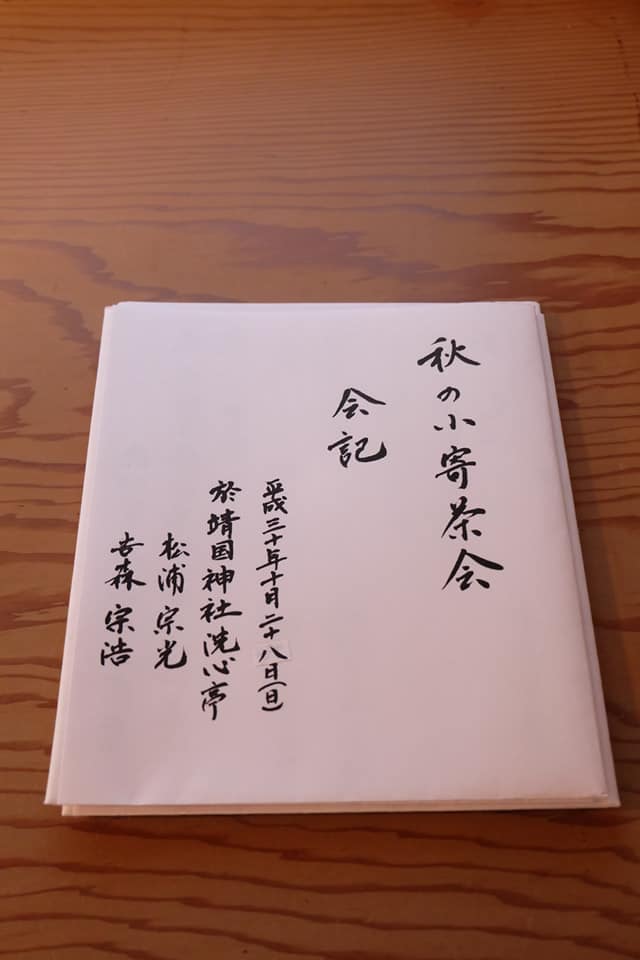 秋の小寄茶会
会記
平成三十年十月二十八日(日)
於靖国神社洗心亭
松浦宗光
吉森宗浩